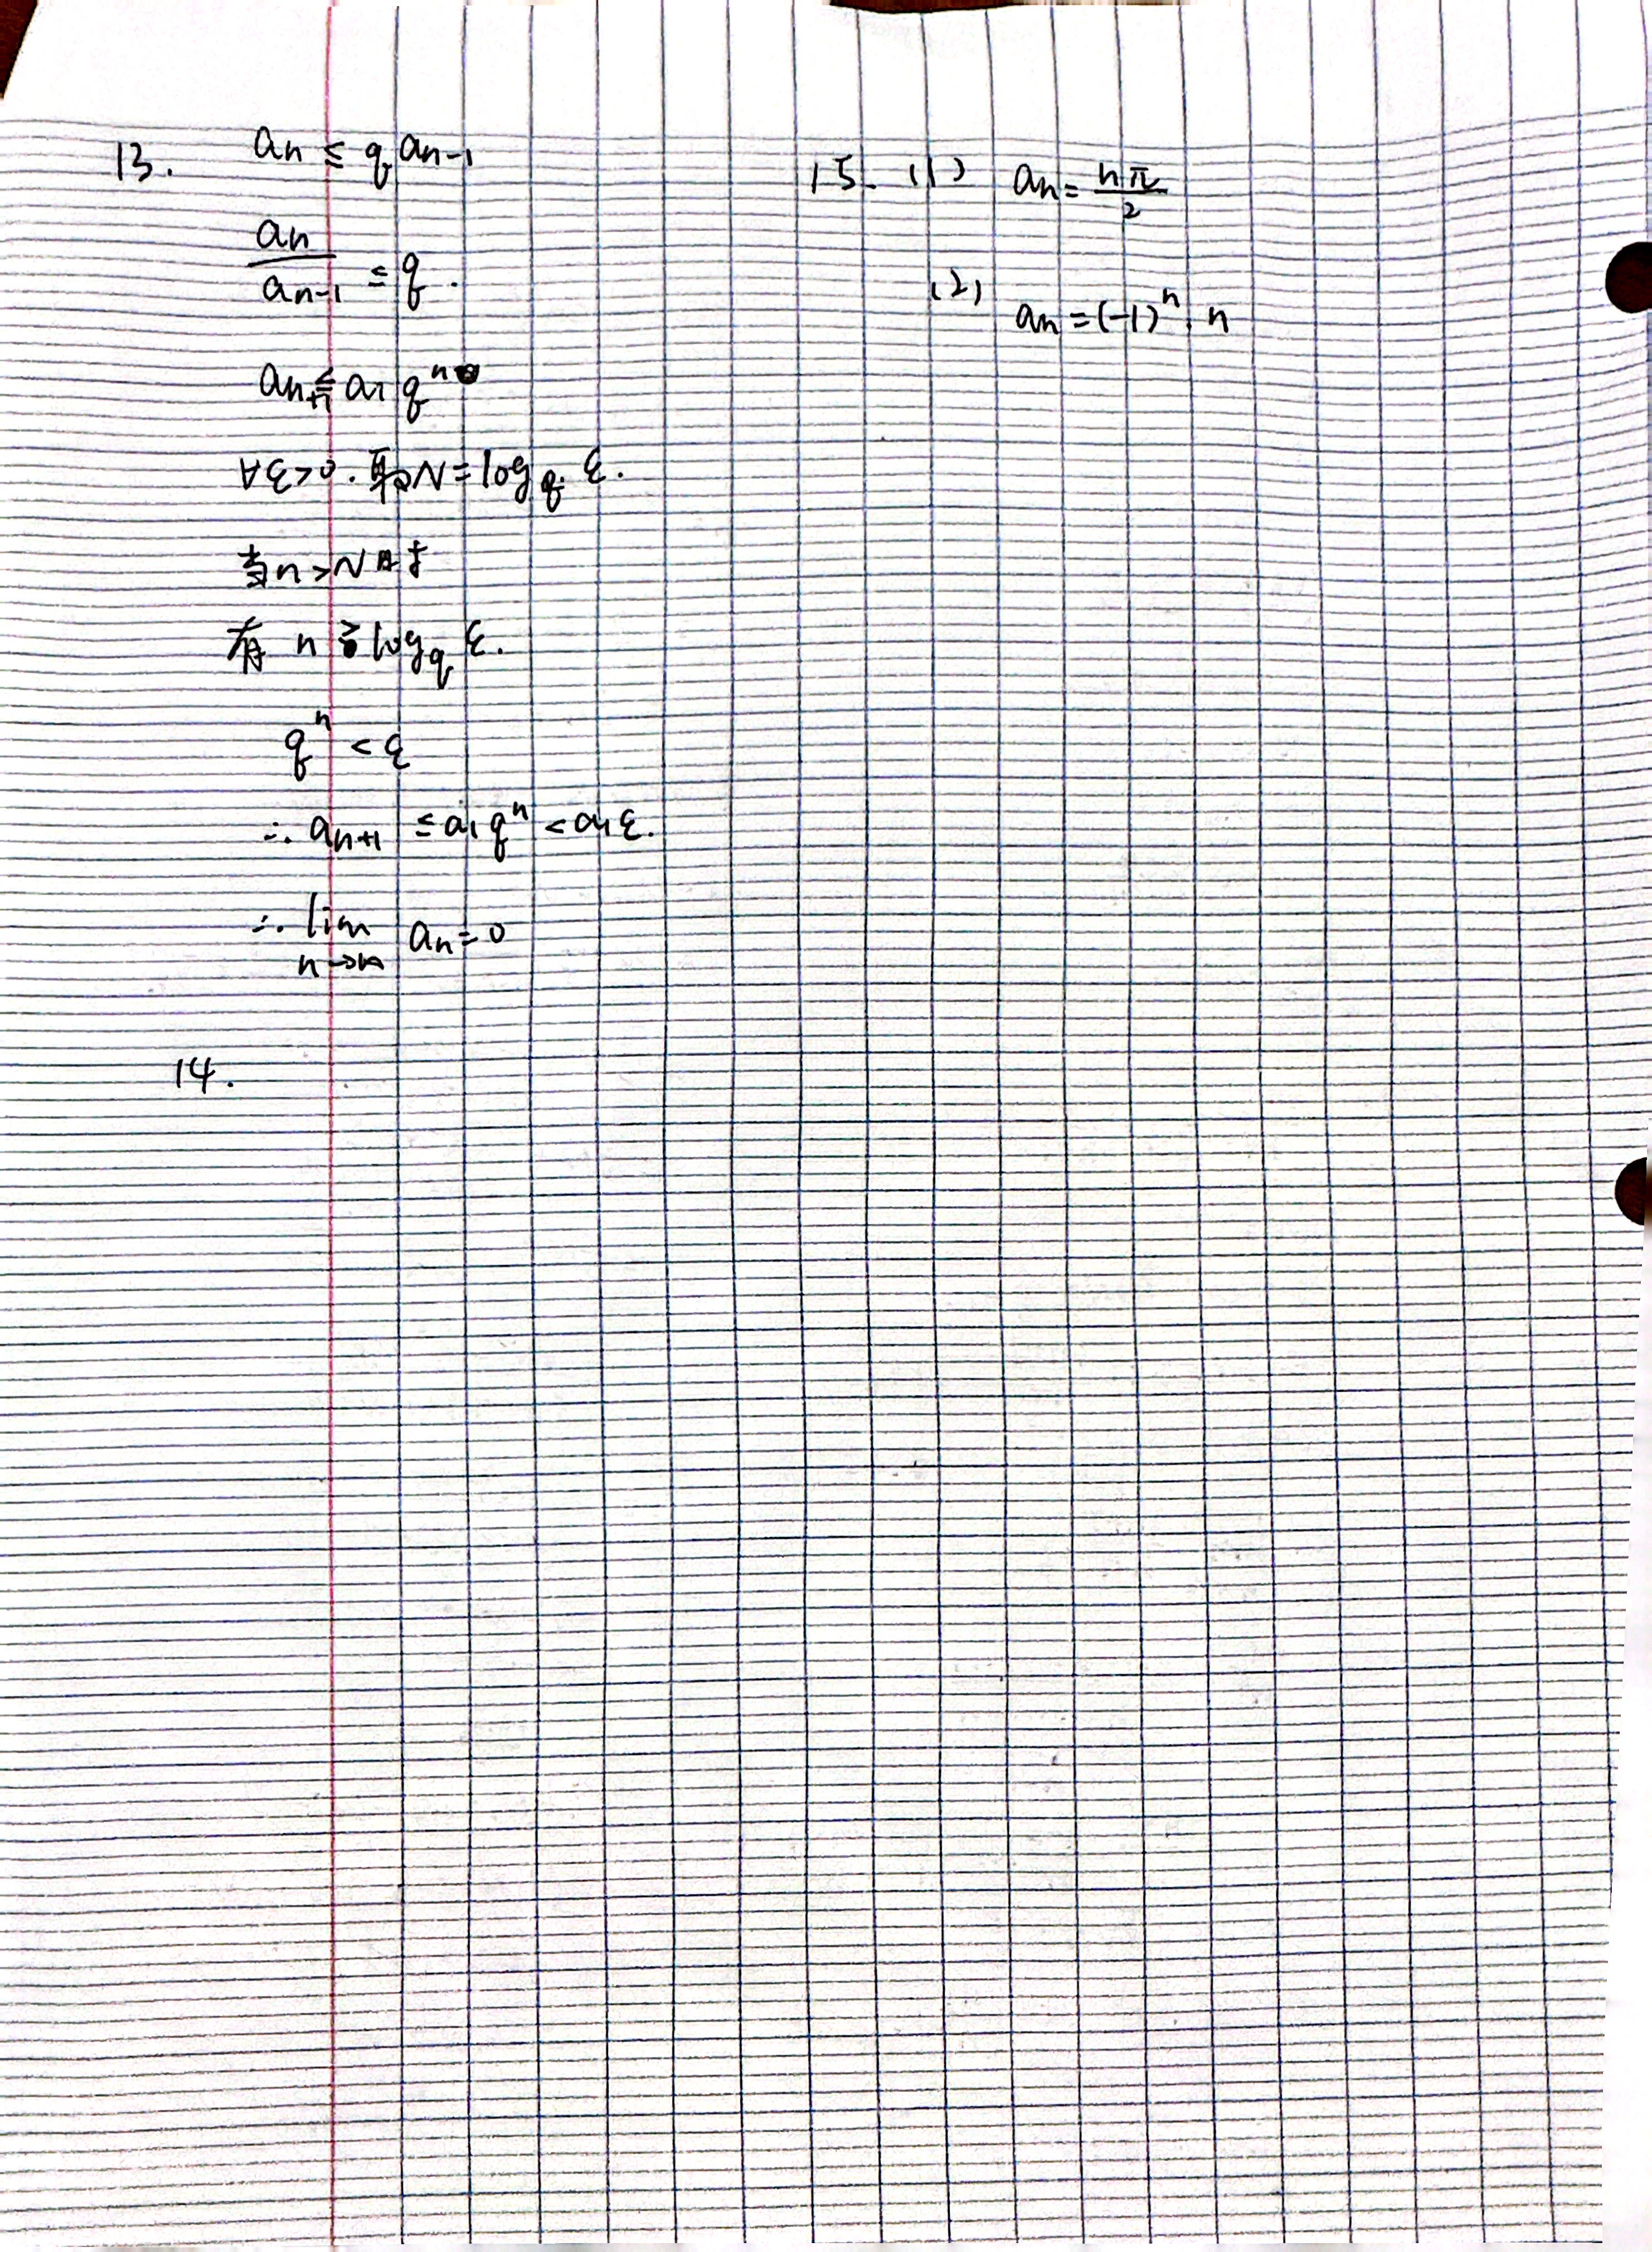 13. an ≤ q an-1
an/an-1 ≤ q.
an+1 ≤ a1 q^n
∀ε>0. 取N=log_q ε.
当n>N时
有 n ≥ log_q ε.
q^n < ε
∴ an+1 ≤ a1 q^n < a1 ε.
∴ lim n→∞ an=0
14.
15. (1) an= nπ/2
(2) an=(-1)^n · n